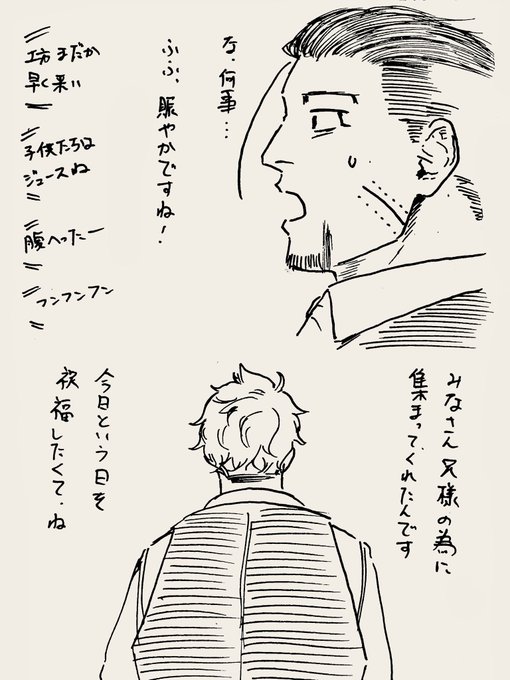 な、何事…
ふふ、賑やかですね!
坊まだか
早く来い
子供たちは
ジュースね
腹へったー
フンフンフン
みなさん兄様の為に
集まってくれたんです
今日という日を
祝福したくて、ね